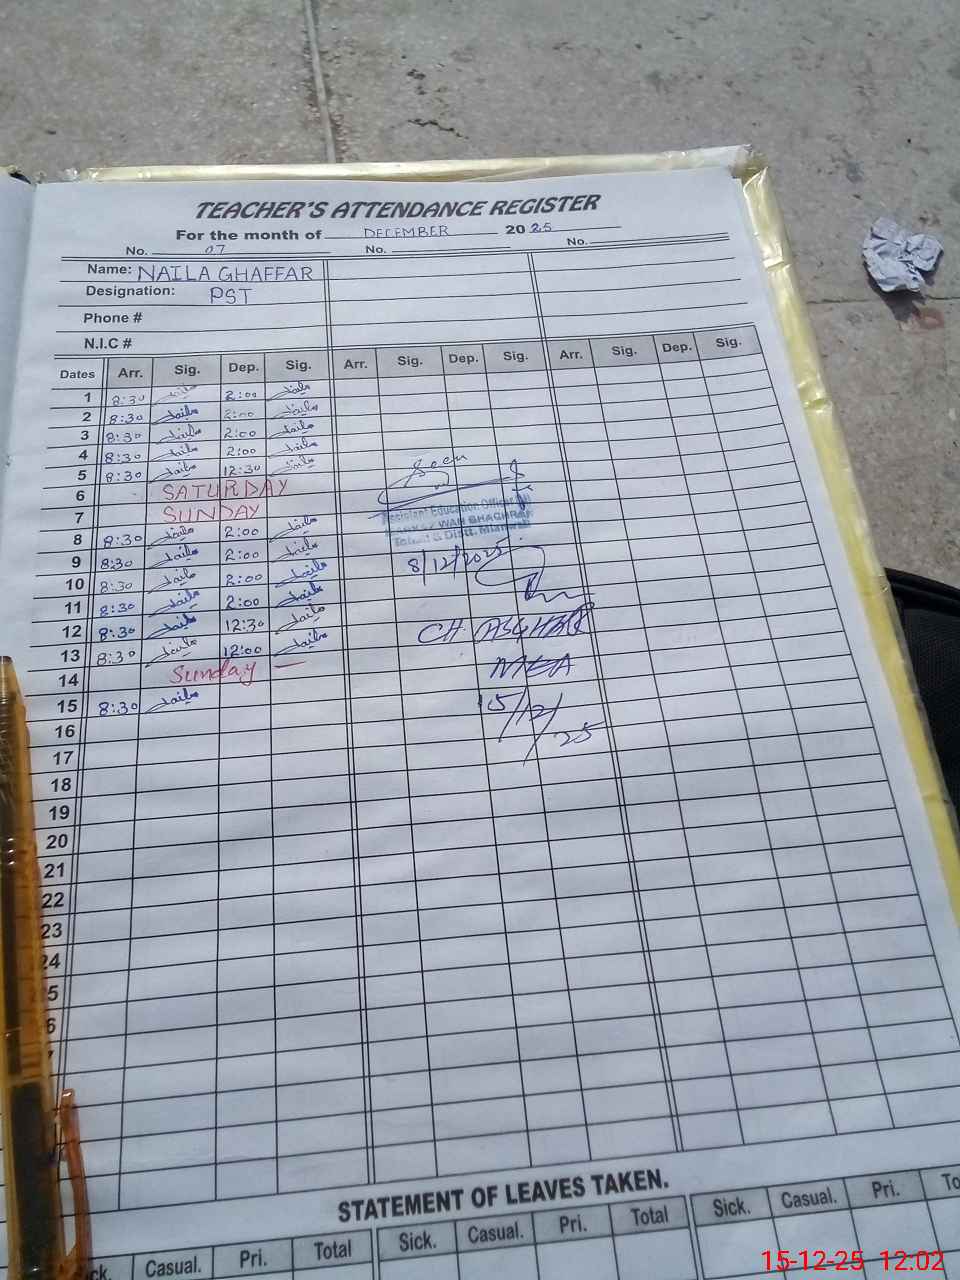 TEACHER'S ATTENDANCE REGISTER
For the month of DECEMBER 2025
No. 07 No. No.
Name: NAILA GHAFFAR
Designation: PST
Phone #
N.I.C #
Dates Arr. Sig. Dep. Sig. Arr. Sig. Dep. Sig. Arr. Sig. Dep. Sig.
1 8:30 نائیلہ 2:00 نائیلہ
2 8:30 نائیلہ 2:00 نائیلہ
3 8:30 نائیلہ 2:00 نائیلہ
4 8:30 نائیلہ 2:00 نائیلہ
5 8:30 نائیلہ 12:30 نائیلہ
Seen
6 SATURDAY
7 SUNDAY
Assistant Education Officer
WAN BHACHRAN
Tehsil & Distt. Mianwali
8 8:30 نائیلہ 2:00 نائیلہ
8/12/2025
9 8:30 نائیلہ 2:00 نائیلہ
10 8:30 نائیلہ 2:00 نائیلہ
11 8:30 نائیلہ 2:00 نائیلہ
12 8:30 نائیلہ 12:30 نائیلہ
CH. ASGHAR
13 8:30 نائیلہ 12:00 نائیلہ
MEA
14 Sunday —
15 8:30 نائیلہ
15/12/25
16
17
18
19
20
21
22
23
24
25
6
7
STATEMENT OF LEAVES TAKEN.
ck. Casual. Pri. Total Sick. Casual. Pri. Total Sick. Casual. Pri. To
15-12-25 12:02